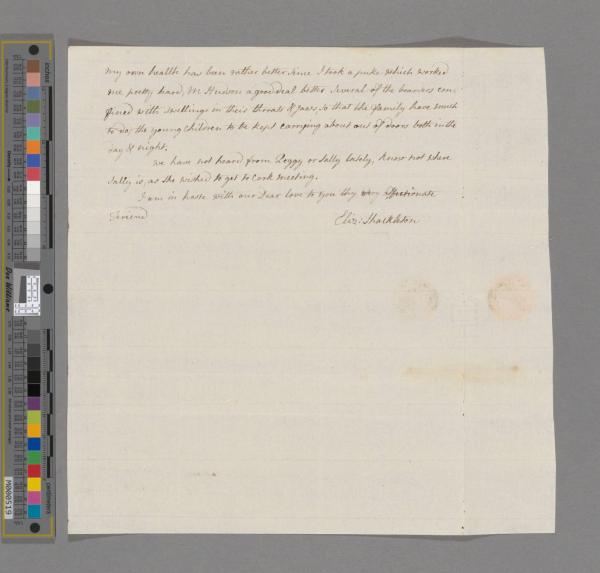 my own health has been rather better since I took a puke which worked
me pretty hard, M. Hudson a good deal better several of the boarders con
fined with swellings in their throats & jaws, so that the family have much
to do, the young Children to be kept carrying about out of doors both in the
day & night.
we have not heard from Peggy or Sally lately, know not where
Sally is, as she wished to get to Cork meeting.
I am in haste with our Dear love to you thy very affectionate
Friend
Eliz: Shackleton
inches
Dee Williams
centimeters
M000519